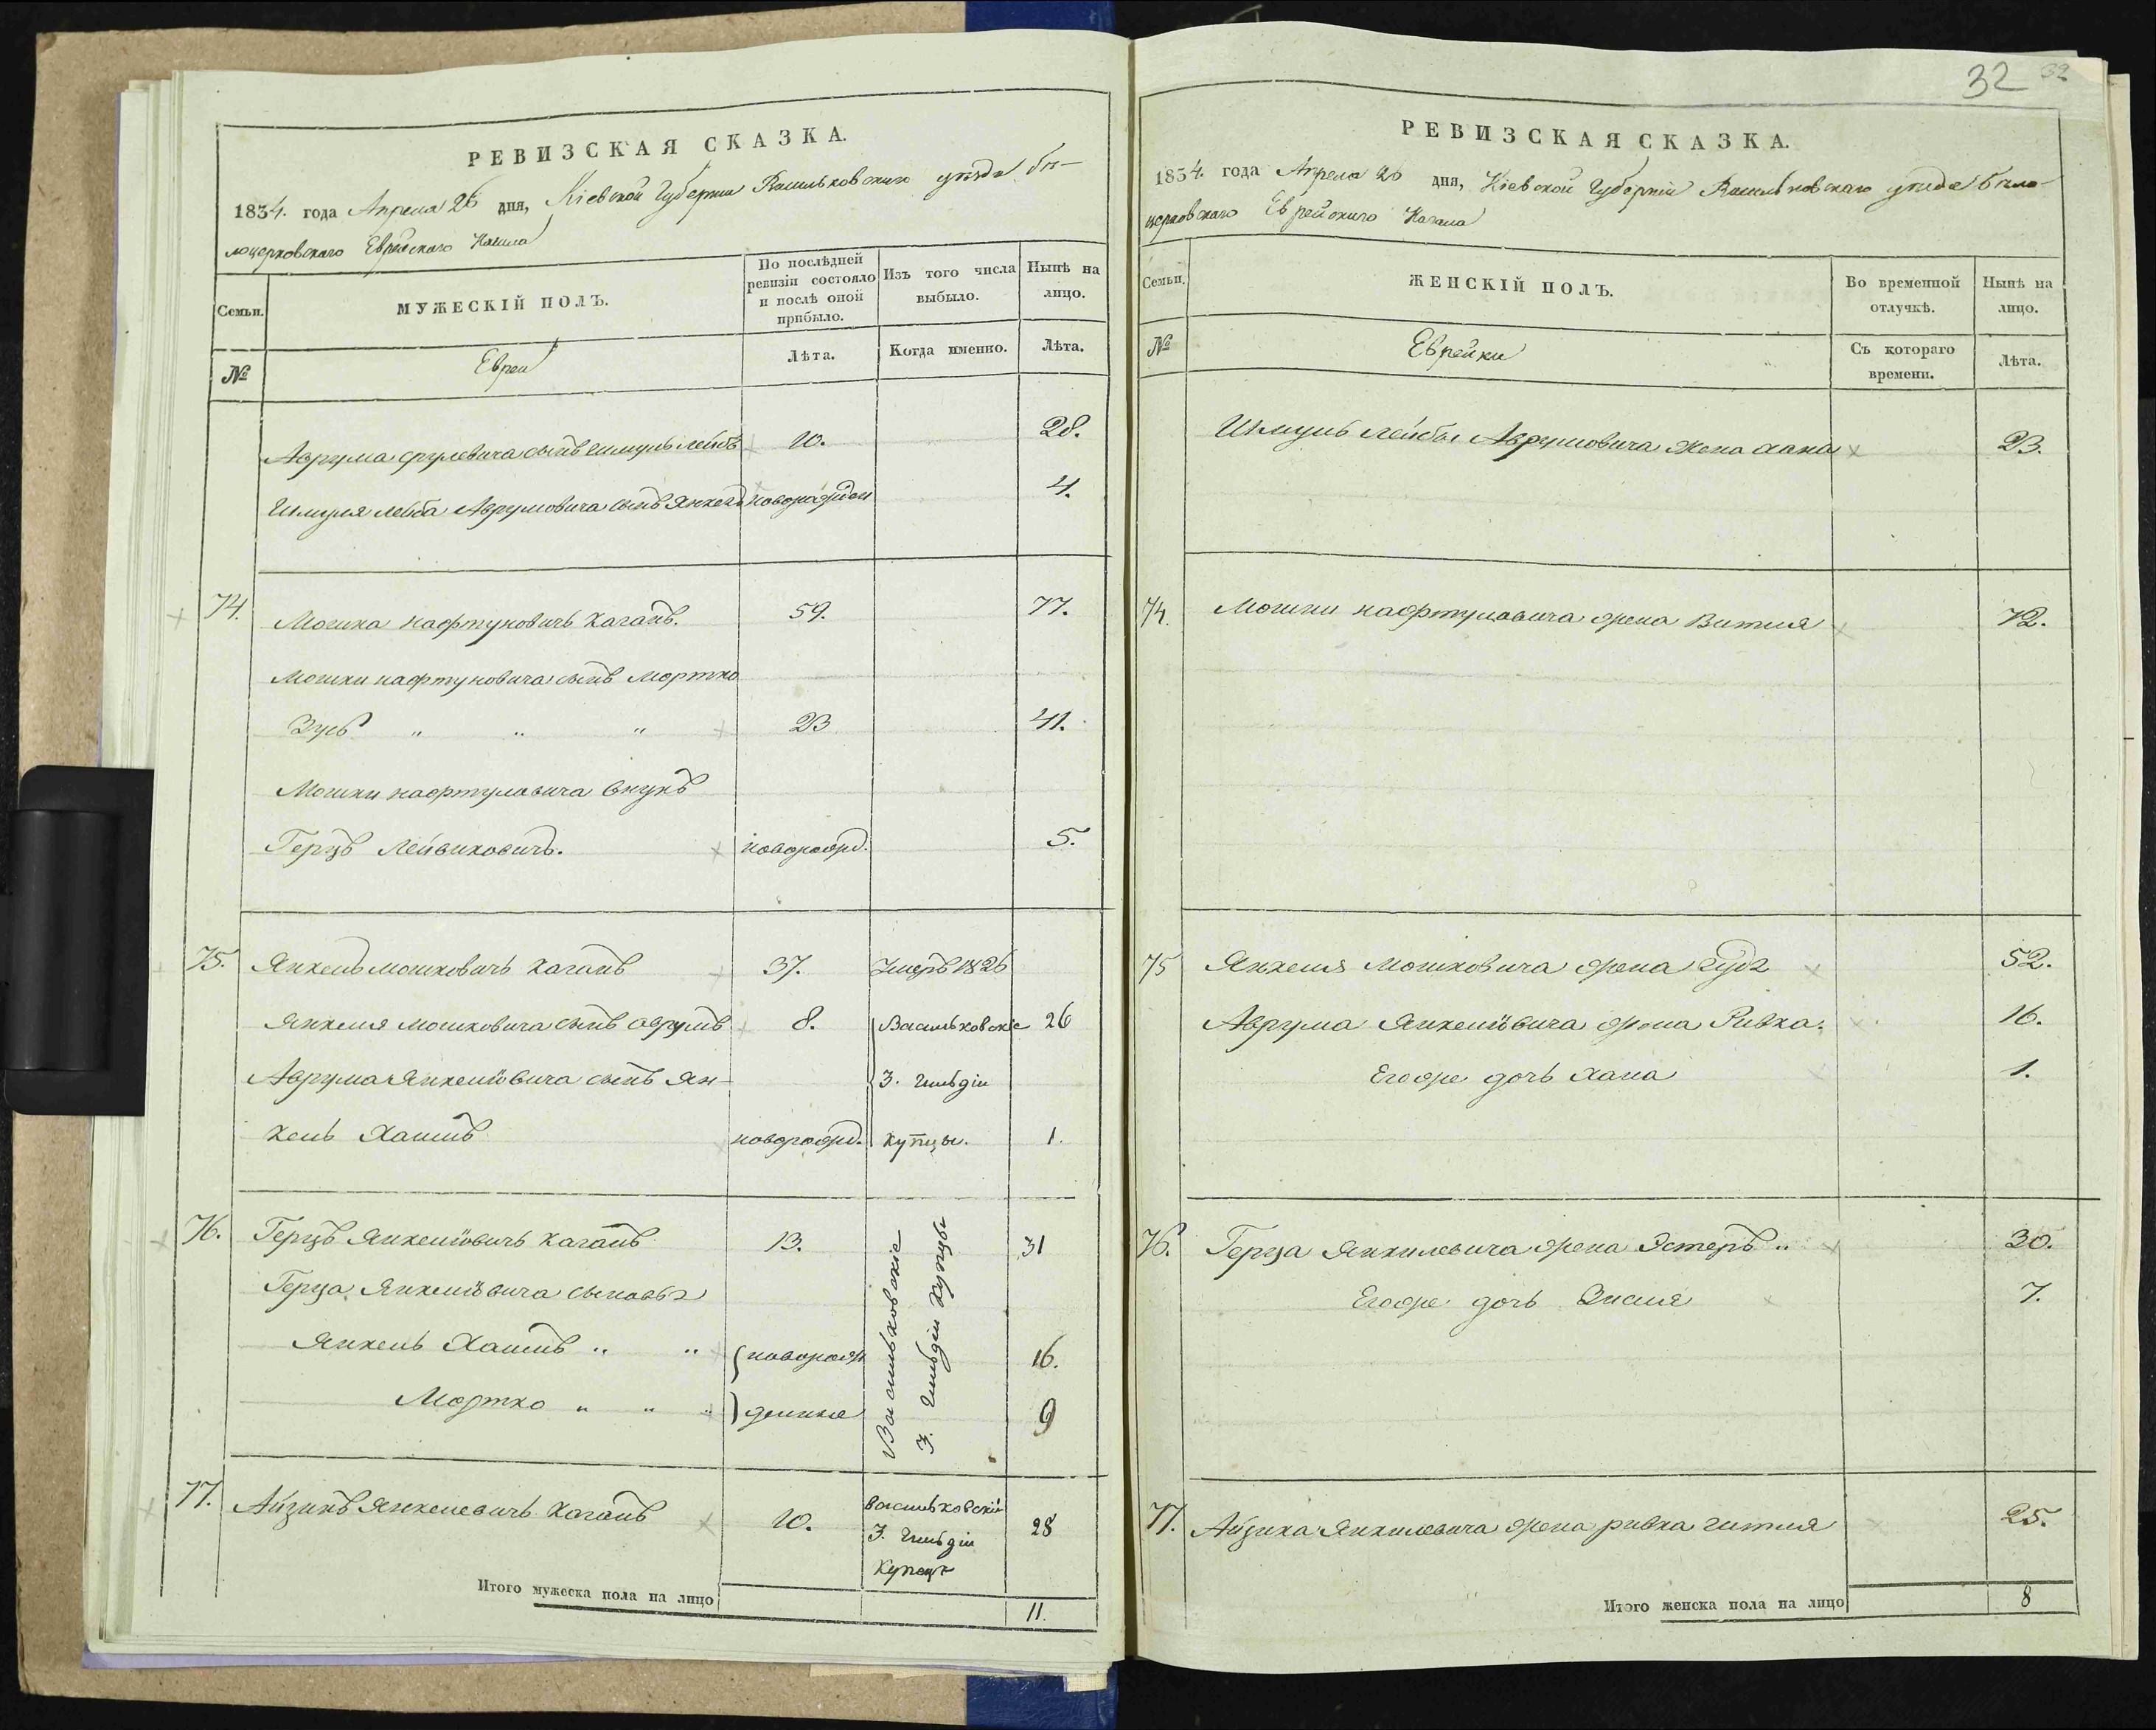 РЕВИЗСКАЯ СКАЗКА.
1834. года Апреля 26 дня, Кіевской Губерніи Васильковскаго уѣзда бѣ-
лоцерковскаго Еврейскаго Кагала
Семьи.
МУЖЕСКІЙ ПОЛЪ.
По послѣдней ревизіи состояло и послѣ оной прибыло.
Изъ того числа выбыло.
Нынѣ на лицо.
№
Евреи
Лѣта.
Когда именно.
Лѣта.
Аврума срулевича сынъ шмуль лейбъ 10. 28.
Шмуля лейба Аврумовича сынъ Янкель новорожден 4.
74. Мошка нафтуловичъ каганъ. 59. 77.
Мошки нафтуловича сынъ мортко
Зусь " " " 23 41.
Мошки нафтуловича внукъ
Герцъ Лейвиковичъ. новорожд. 5.
75. Янкель мошковичъ каганъ 37. Умеръ 1826
Янкеля мошковича сынъ аврумъ 8. Васильковскіе 26
Аврума Янкелѣвича сынъ Ян- 3. гильдіи
кель Хаимъ новорожд. купцы. 1.
76. Герцъ Янкелѣвичъ каганъ 13. 31
Герца Янкелѣвича сыновья
Янкель Хаимъ " " новорож 16.
Мортко " " " денные 9
Васильковскіе
3. Гильдіи Купцы
77. Айзикъ Янкелевичъ каганъ 10. васильковскій 28
3. Гильдіи
Купецъ
Итого мужеска пола на лицо 11.
32 32
РЕВИЗСКАЯ СКАЗКА.
1834. года Апреля 26 дня, Кіевской Губерніи Васильковскаго уѣзда бѣло-
церковскаго Еврейскаго Кагала
Семьи.
ЖЕНСКІЙ ПОЛЪ.
Во временной отлучкѣ.
Нынѣ на лицо.
№
Еврейки
Съ котораго времени.
Лѣта.
Шмуль лейбы Аврумовича жена хана 23.
74. Мошки нафтуловича жена Витля 72.
75 Янкеля мошковича жена 52.
Аврума Янкелѣвича жена Ривка. 16.
Егоже дочь Хана 1.
76. Герца Янкилевича жена Эстеръ " 30.
Егоже дочь Зисля 7.
77. Айзика Янкилевича жена ривка гитля 25.
Итого женска пола на лицо 8